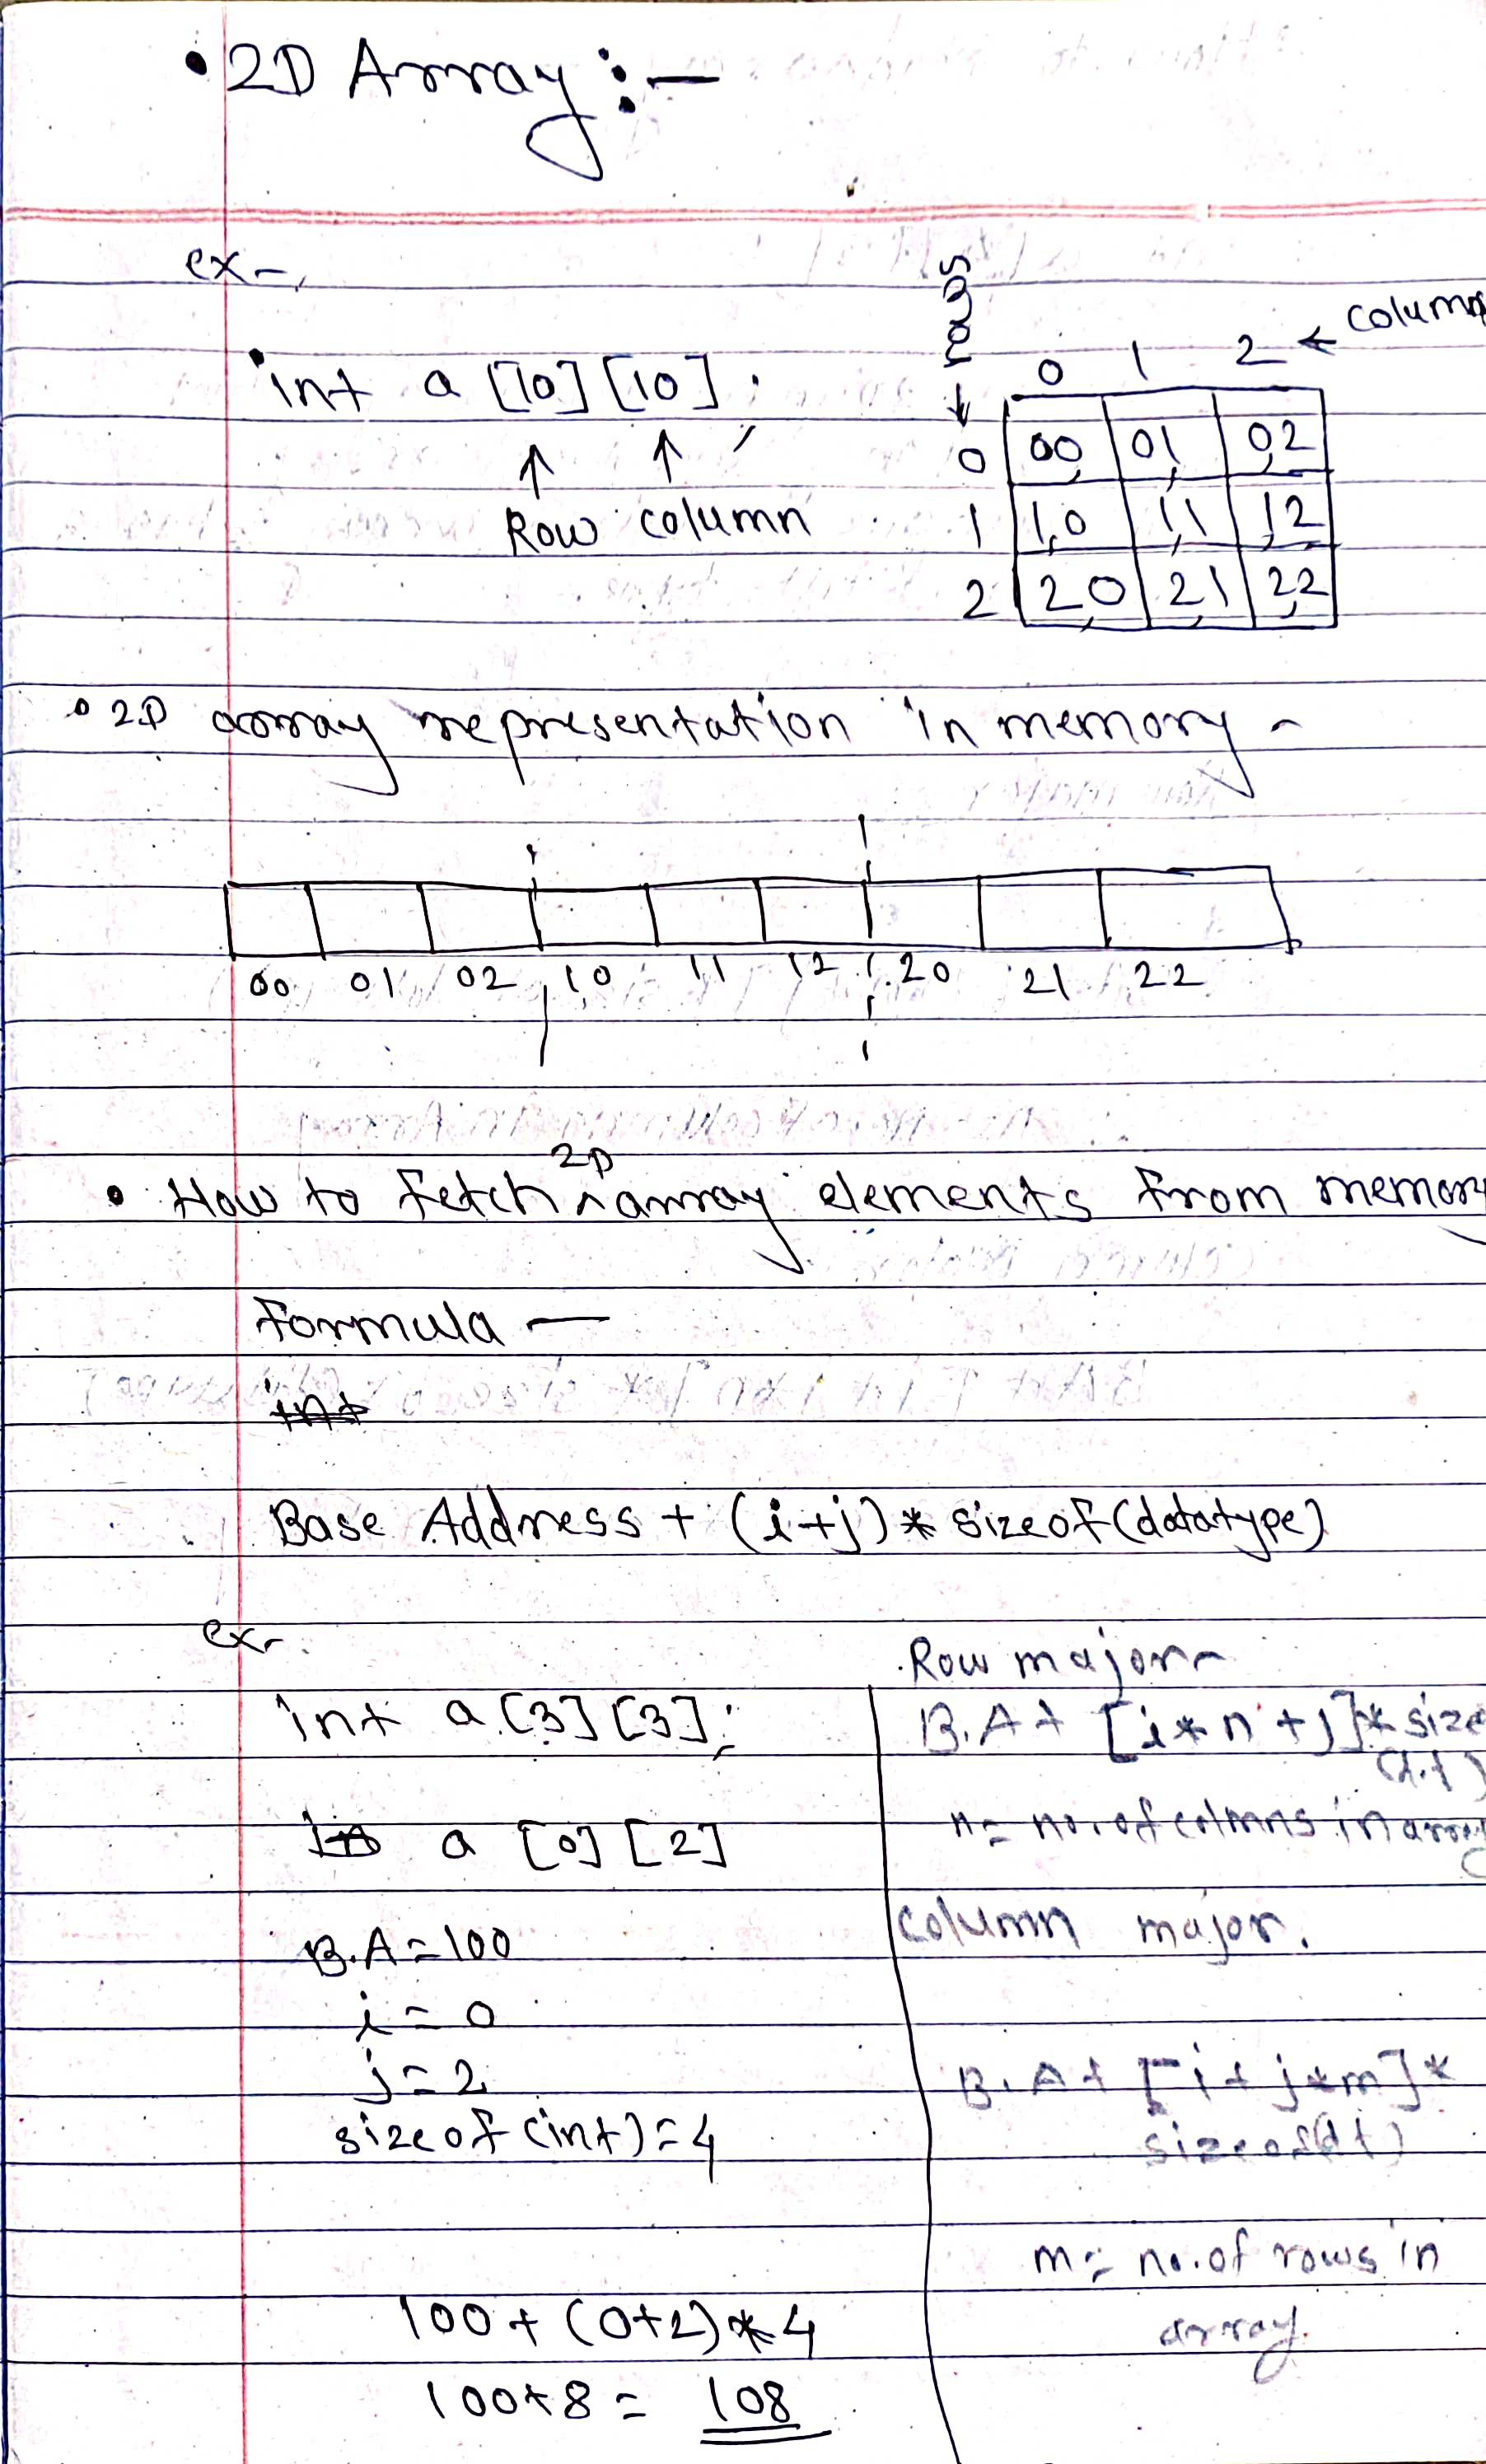 • 2D Array :-
ex-
int a [10] [10] ;
↑ ↑
Row column
rows
↓
0 1 2 ← column
0 0,0 0,1 0,2
1 1,0 1,1 1,2
2 2,0 2,1 2,2
• 2D array representation in memory -
00 01 02 10 11 12 20 21 22
• How to fetch 2D array elements from memory
Formula —
int
Base Address + (i+j) * sizeof(datatype)
ex-
int a [3] [3];
a [0] [2]
B.A = 100
i = 0
j = 2
sizeof (int) = 4
100 + (0+2) * 4
100 + 8 = 108
Row major -
B.A + [i * n + j] * size
(d.t)
n = no. of colmns in array
column major.
B.A + [i + j * m] *
sizeof(dt)
m = no. of rows in
array.